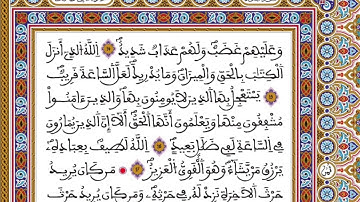 وَعَلَيْهِمْ غَضَبٌ وَلَهُمْ عَذَابٌ شَدِيدٌ ۝ اللَّهُ الَّذِي أَنزَلَ
الْكِتَابَ بِالْحَقِّ وَالْمِيزَانَ وَمَا يُدْرِيكَ لَعَلَّ السَّاعَةَ قَرِيبٌ ۝
يَسْتَعْجِلُ بِهَا الَّذِينَ لَا يُؤْمِنُونَ بِهَا وَالَّذِينَ ءَامَنُوا
مُشْفِقُونَ مِنْهَا وَيَعْلَمُونَ أَنَّهَا الْحَقُّ أَلَا إِنَّ الَّذِينَ يُمَارُونَ
فِي السَّاعَةِ لَفِي ضَلَالٍ بَعِيدٍ ۝ اللَّهُ لَطِيفٌ بِعِبَادِهِ
يَرْزُقُ مَن يَشَاءُ وَهُوَ الْقَوِيُّ الْعَزِيزُ ۝ مَن كَانَ يُرِيدُ
حَرْثَ الْآخِرَةِ نَزِدْ لَهُ فِي حَرْثِهِ وَمَن كَانَ يُرِيدُ حَرْثَ